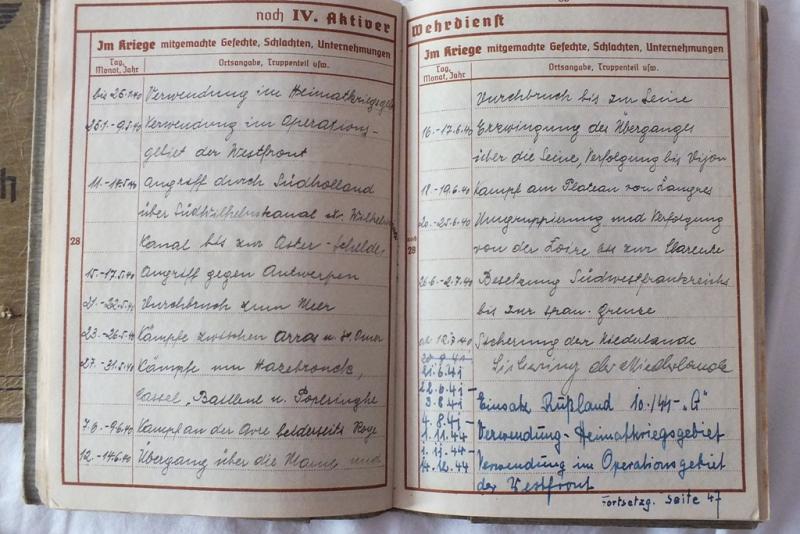 noch IV. Aktiver
Im Kriege mitgemachte Gefechte, Schlachten, Unternehmungen
Tag, Monat, Jahr
Ortsangabe, Truppenteil usw.
bis 25.1.40 Verwendung im Heimatkriegsgeb.
25.1.-9.5.40 Verwendung im Operations-
gebiet der Westfront
11.-14.5.40 Angriff durch Südholland
über Südwilhelmskanal
28
Kanal bis zur Oster-Schelde
15.-17.5.40 Angriff gegen Antwerpen
21.-22.5.40 Durchbruch zum Meer
23.-26.5.40 Kämpfe zwischen Arras u. St. Omer
27.-31.5.40 Kämpfe um Hazebrouck,
Cassel, Bailleue u. Poperinghe
7.6.-9.6.40 Kampf an der Avre beiderseits Roye
12.-14.6.40 Übergang über die Marne und
Wehrdienst
Im Kriege mitgemachte Gefechte, Schlachten, Unternehmungen
Tag, Monat, Jahr
Ortsangabe, Truppenteil usw.
Durchbruch bis zur Seine
16.-17.6.40 Erzwingung des Überganges
über die Seine, Verfolgung bis Dijon
18.-19.6.40 Kampf am Plateau von Langres
20.-25.6.40 Umgruppierung und Verfolgung
von der Loire bis zur Charente
noch 28
26.6.-2.7.40 Besetzung Südwestfrankreichs
bis zur span. Grenze
Sicherung der Niederlande
21.6.41 Sicherung der Niederlande
22.6.41-
3.8.41 Einsatz Rußland 10./41-"G"
4.8.41-
1.11.44 Verwendung-Heimatkriegsgebiet
1.11.44-
14.12.44 Verwendung im Operationsgebiet
der Westfront
Fortsetzg. Seite 47